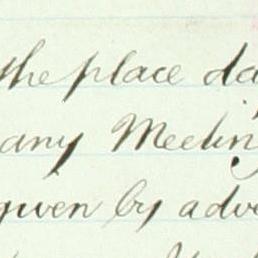 the place da
any Meetin
given by adve